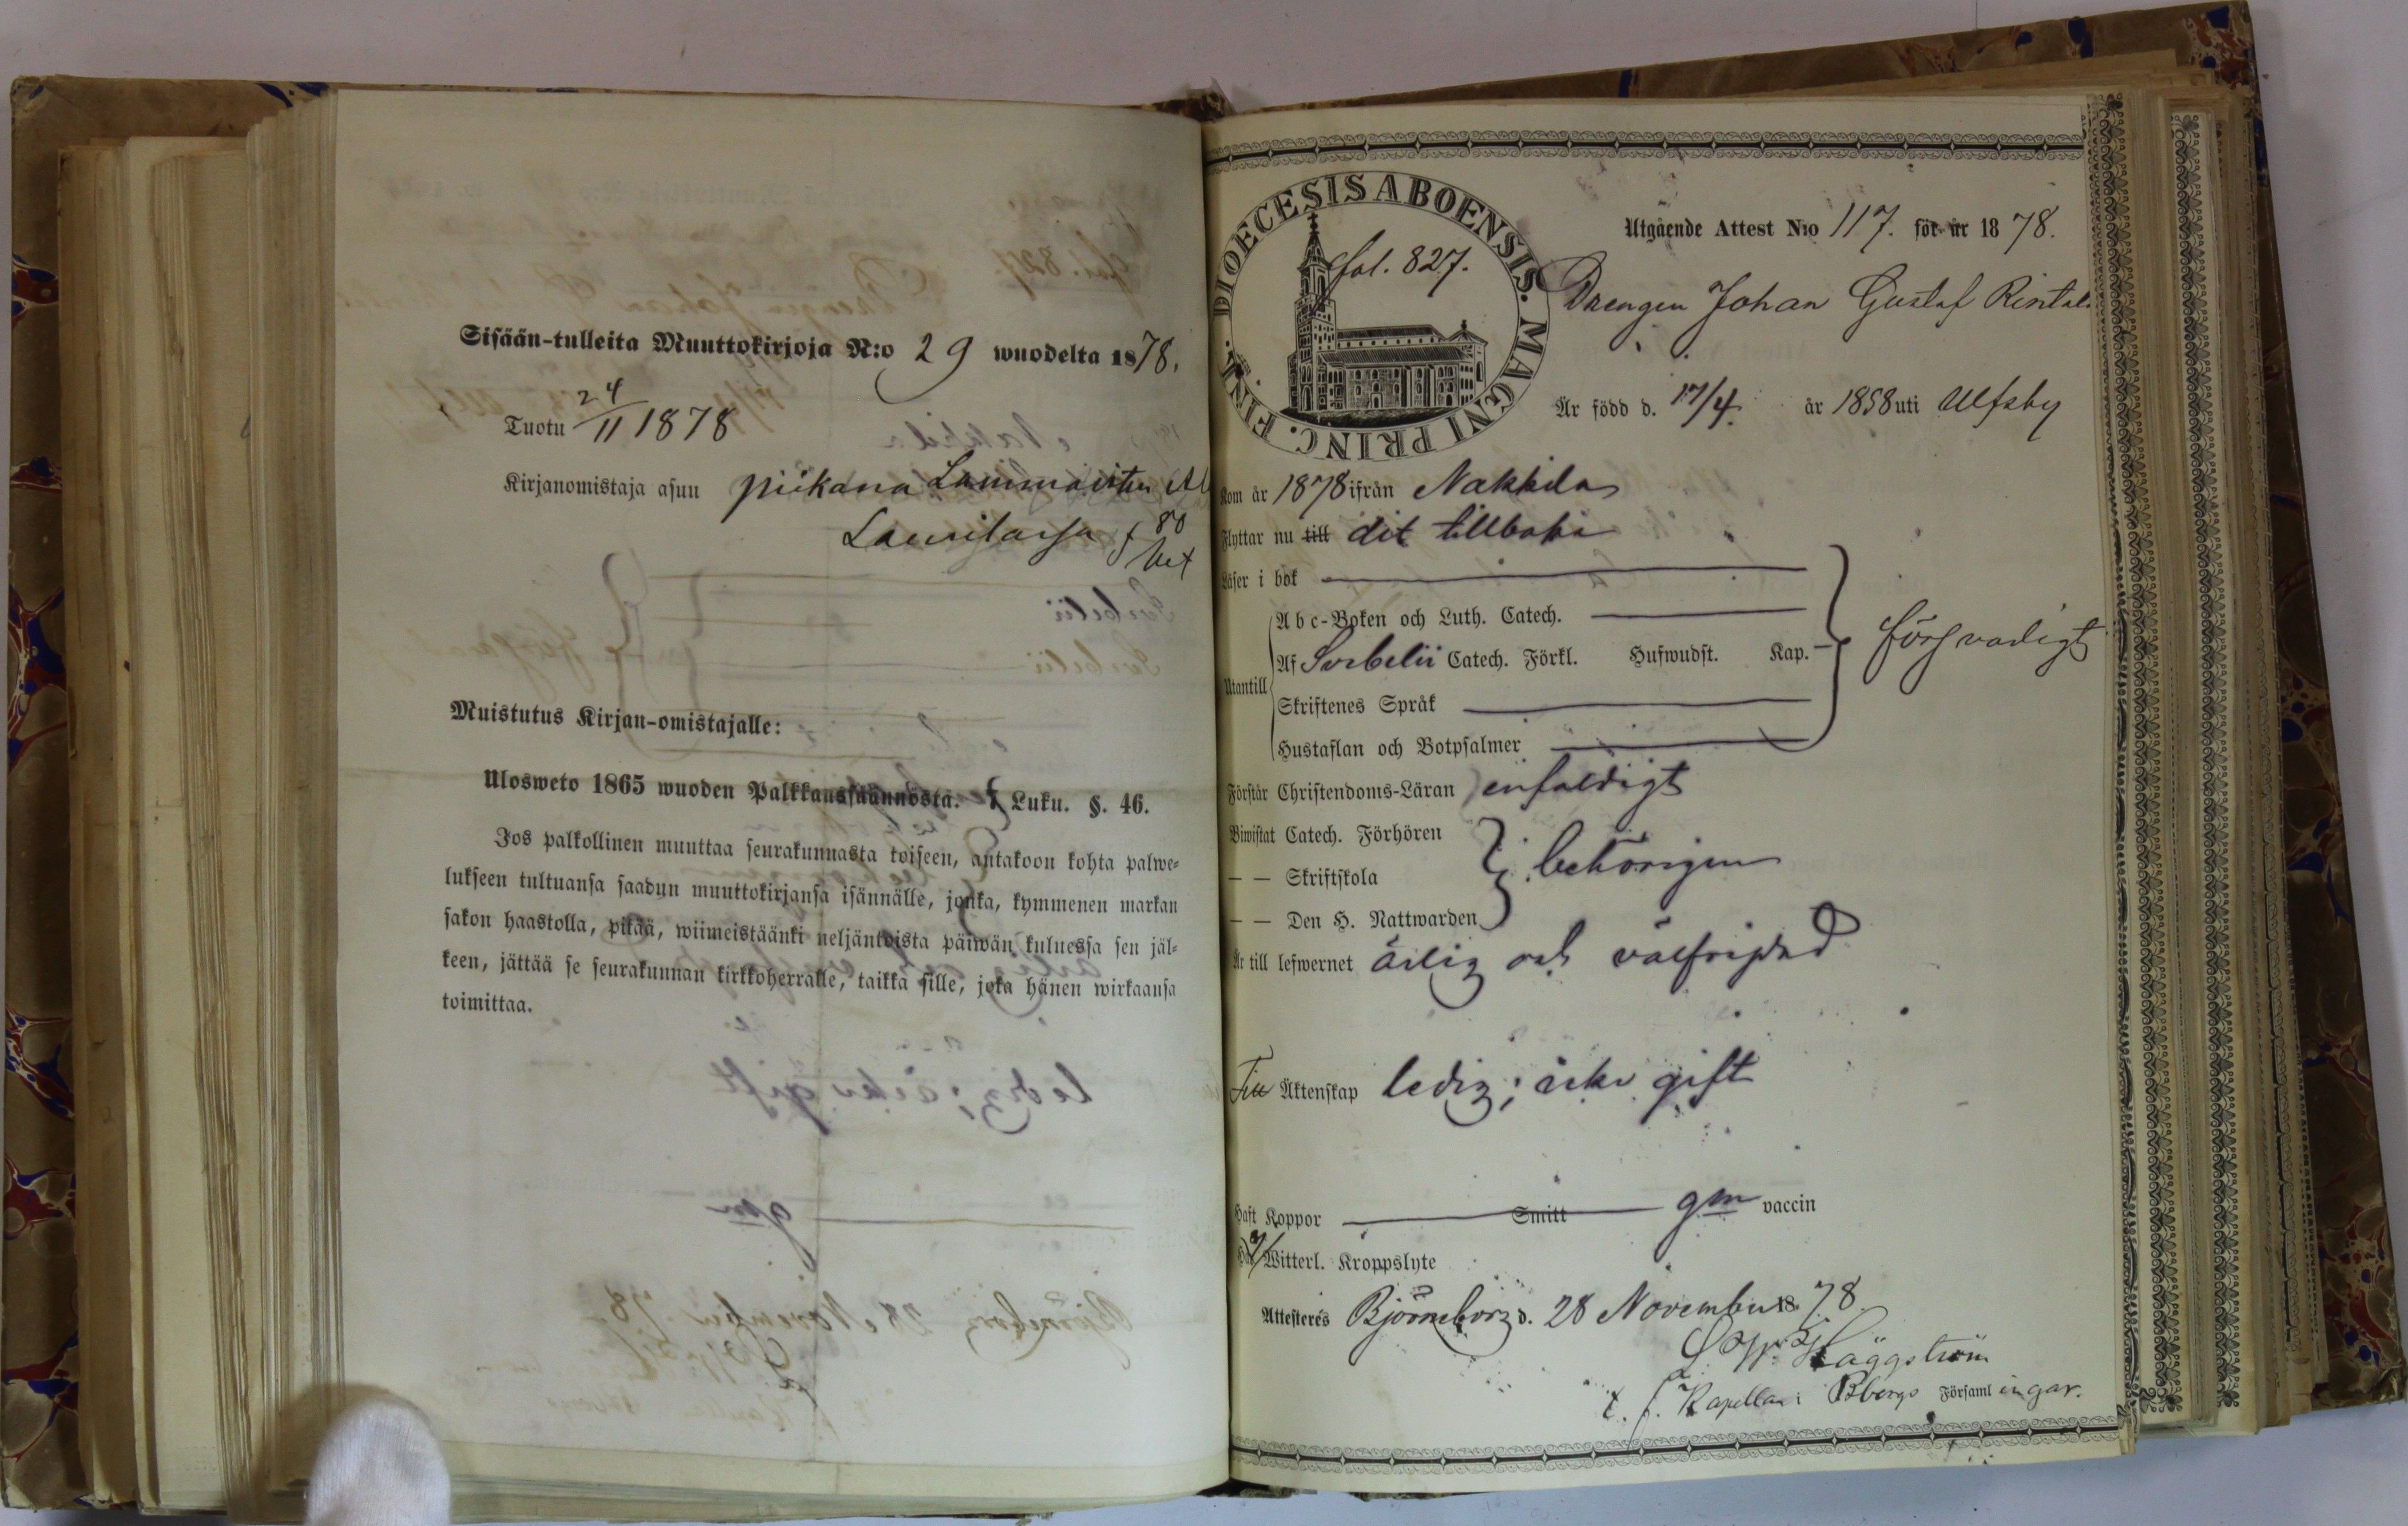 Sisään-tulleita Muuttokirjoja N:o 29 wuodelta 1878.
Tuotu 24/11 1878
Kirjanomistaja asuu piikana Lammaisten Al
Laurilassa f 80
Muistutus Kirjan-omistajalle:
Ulosweto 1865 wuoden Palkkaussäännöstä. Luku. §. 46.
Jos palkollinen muuttaa seurakunnasta toiseen, antakoon kohta palwe-
lukseen tultuansa saadun muuttokirjansa isännälle, jonka, kymmenen markan
sakon haastolla, pitää, wiimeistäänki neljäntoista päiwän kuluessa sen jäl-
keen, jättää se seurakunnan kirkkoherralle, taikka sille, joka hänen wirkaansa
toimittaa.
DIOECESIS ABOENSIS. MAGNI PRINC. FINL.
fol. 827.
Utgående Attest N:o 117. för år 1878.
Drengen Johan Gustaf Rintala
Är född d. 17/4. år 1858 uti Ulfsby
Kom år 1878 ifrån Nakkila
Flyttar nu till dit tillbaka
Läser i bok
Utantill
Abc-Boken och Luth. Catech.
Af Sorbelii Catech. Förkl. Hufwudst. Kap.
försvarligt
Skriftenes Språk
Hustaflan och Botpsalmer
Förstår Christendoms-Läran enfaldigt
Biwistat Catech. Förhören
— — Skriftskola behörigen
— — Den H. Nattwarden
Är till lefwernet ärlig och välfrejdad
Till Äktenskap ledig; icke gift
Haft Koppor Smitt gm vaccin
Har Witterl. Kroppslyte
Attesterés Björneborg d. 28 November 1878.
Häggström
t. f. Kapellan i Bbergs Församlingar.